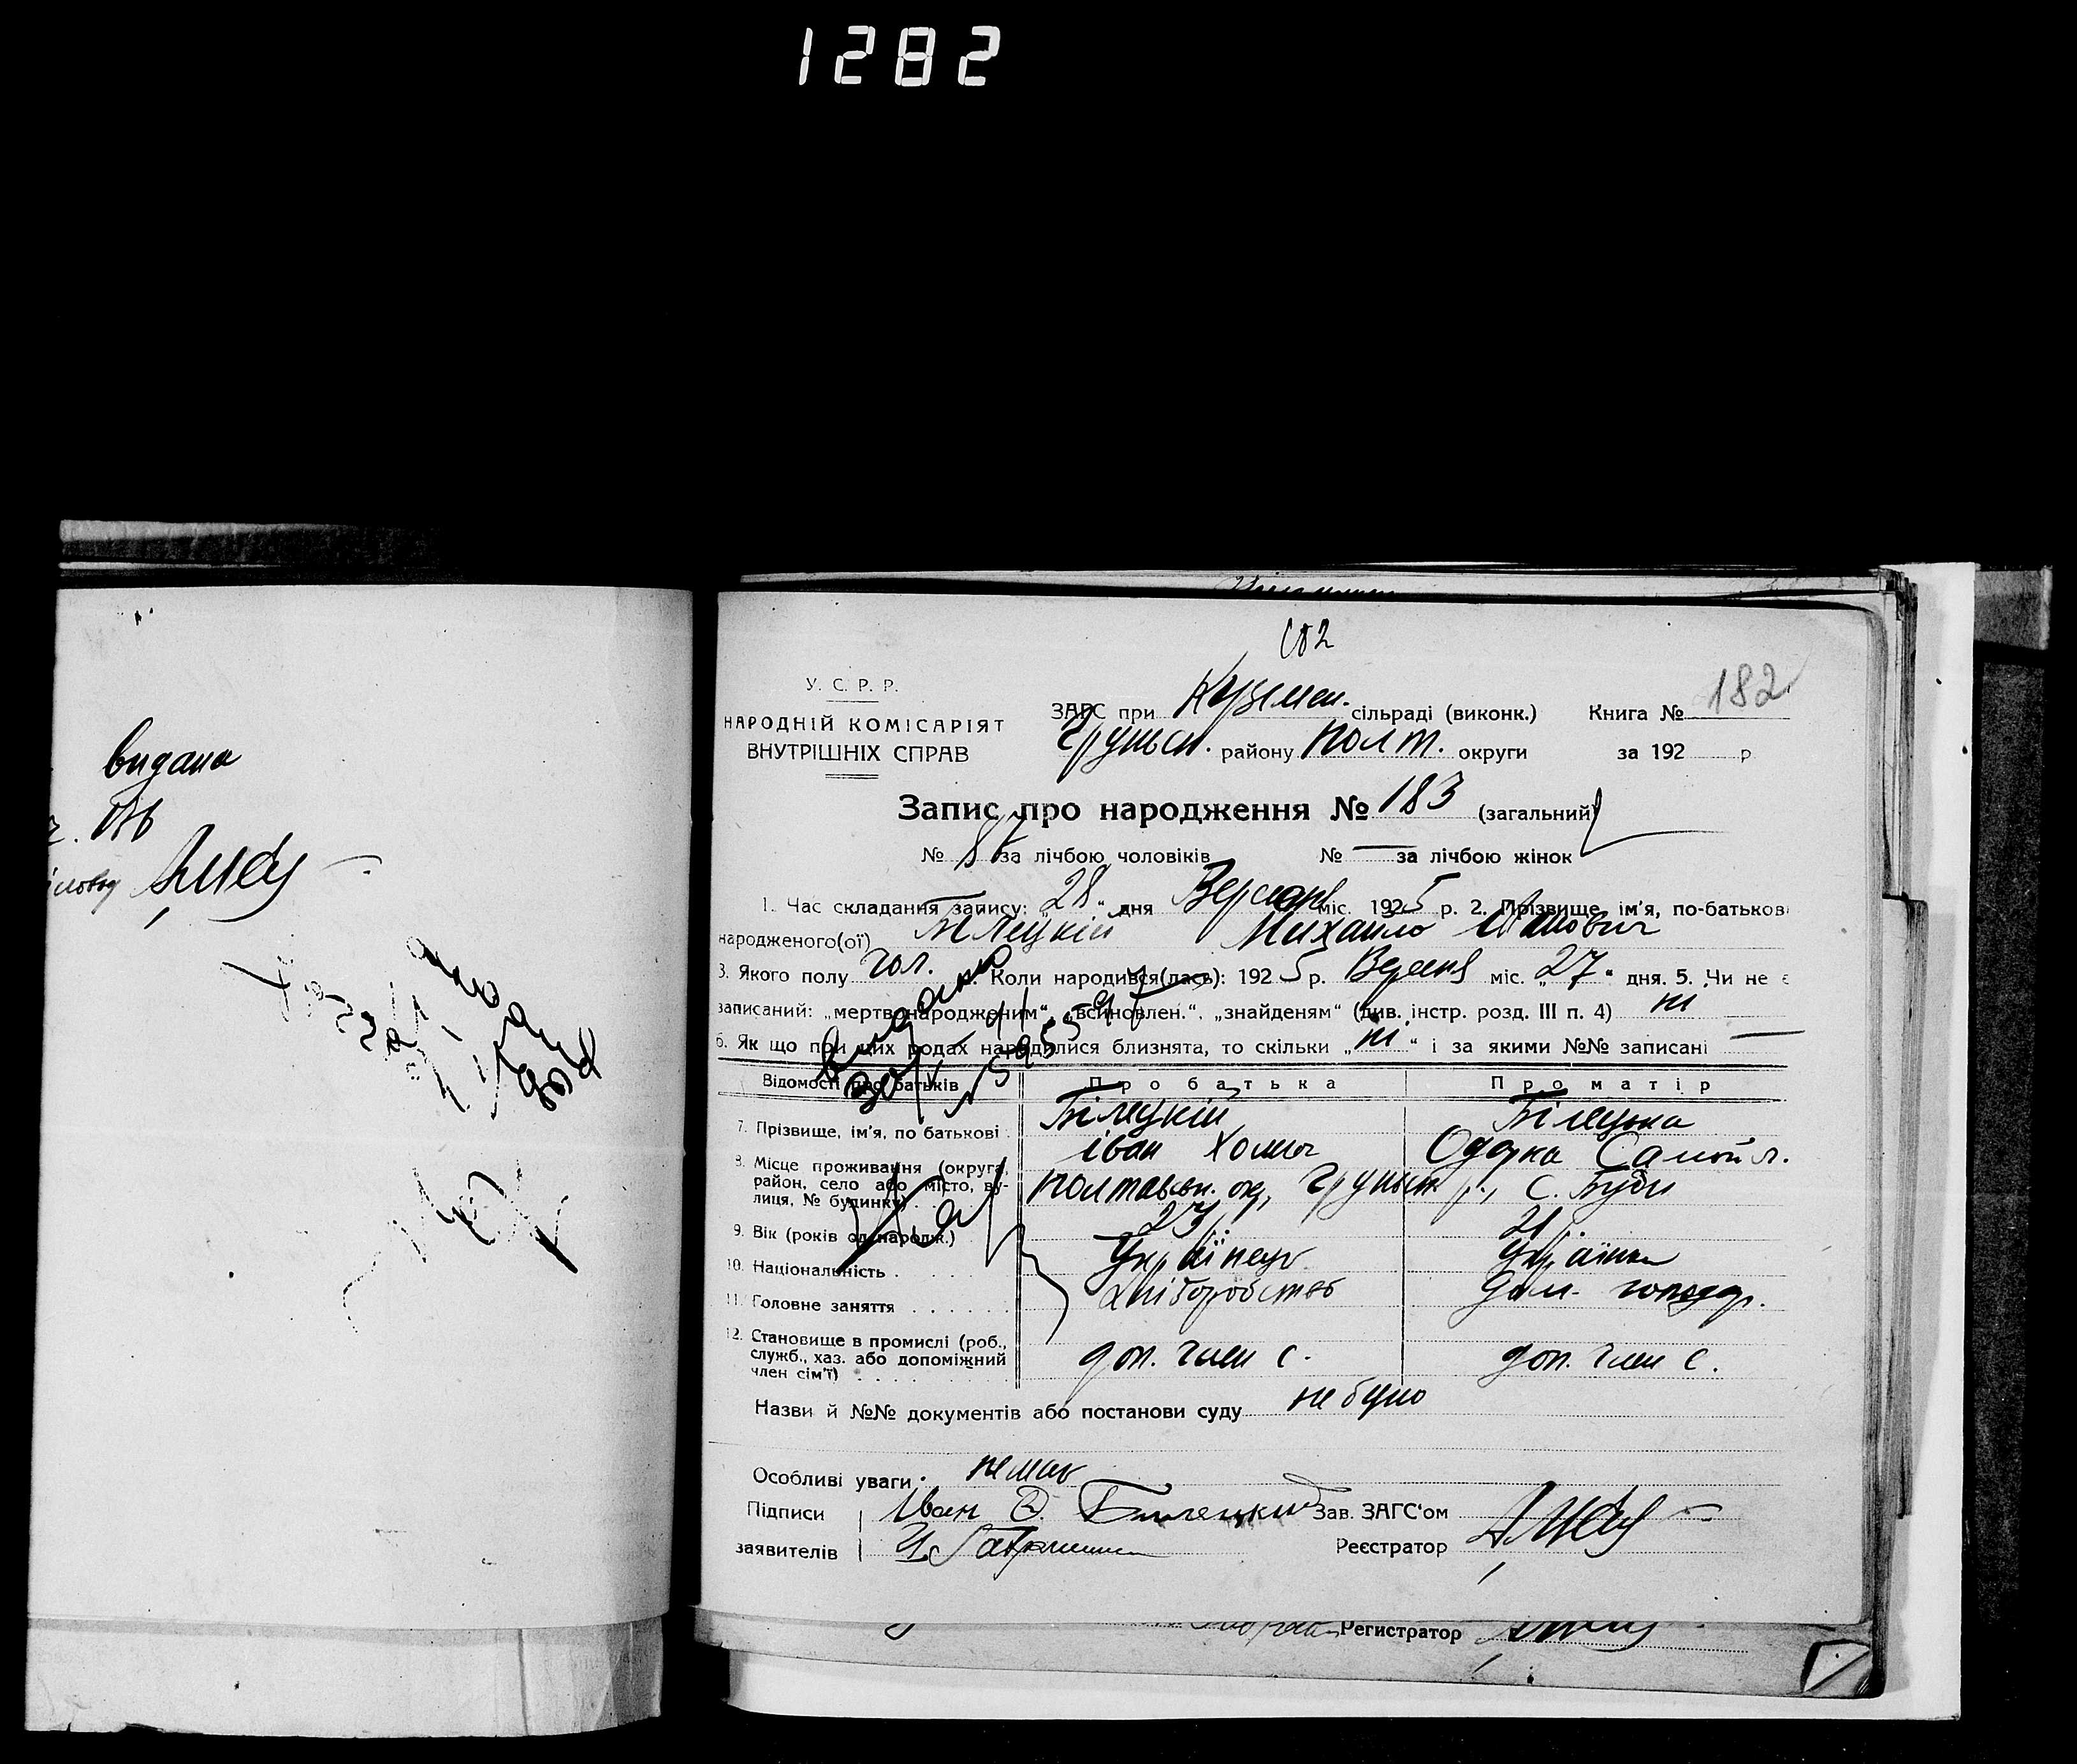 1282
видана
182
182
У. С. Р. Р.
НАРОДНІЙ КОМІСАРІЯТ
ВНУТРІШНІХ СПРАВ
ЗАГС при Кузмен. сільраді (виконк.) Книга №
Груньськ. району Полт. округи за 192 р
Запис про народження № 183 (загальний)
№ 87 за лічбою чоловіків № — за лічбою жінок
1. Час складання запису: „28" дня Вересня міс. 1925 р. 2. Прізвище, ім'я, по-батькові
народженого(ої) Білецкій Михайло Іванович
3. Якого полу чол. 4. Коли народився(лась): 1925 р. Вересня міс. „27" дня. 5. Чи не є
записаний: „мертвонародженим", „всиновлен.", „знайденям" (див. інстр. розд. III п. 4) ні
6. Як що при цих родах народилися близнята, то скільки „ні" і за якими №№ записані —
видано
Відомості про батьків Про батька Про матір
7. Прізвище, ім'я, по батькові Білецкій Іван Хомич Білецька Одарка Самойл.
8. Місце проживання (округа, район, село або місто, вулиця, № будинку) Полтавськ. ок., Груньськ р., с. Буди
9. Вік (років од народж.) 23 21
10. Національність Українець Українка
11. Головне заняття Хліборобство Дом. господар.
12. Становище в промислі (роб., служб., хаз. або допоміжний член сім'ї) доп. член с. доп. член с.
Назви й №№ документів або постанови суду не було
Особливі уваги: немає
Підписи Іван Билецкий Зав. ЗАГС'ом
заявителів Реєстратор
Регистратор